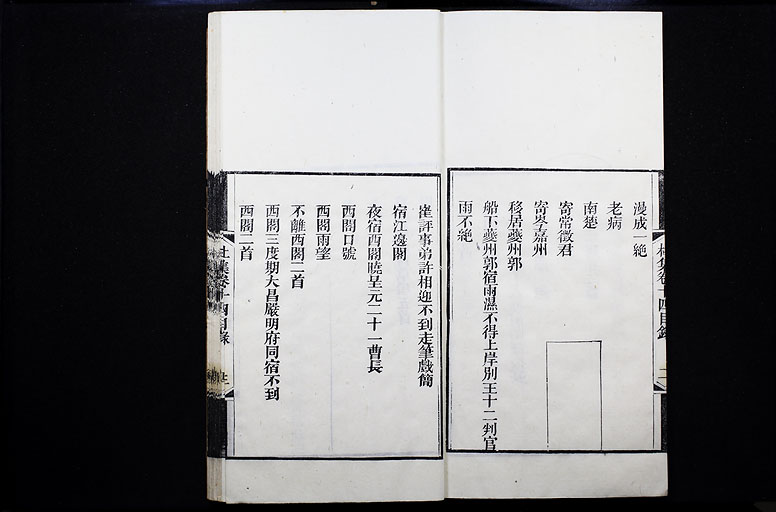 漫成一絶
老病
南楚
寄常徴君
寄岑嘉州
移居夔州郭
船下夔州郭宿雨濕不得上岸別王十二判官
雨不絶
崔評事弟許相迎不到走筆戲簡
宿江邊閣
夜宿西閣曉呈元二十一曹長
西閣口號
西閣雨望
不離西閣二首
西閣三度期大昌嚴明府同宿不到
西閣二首
杜集卷十四目錄